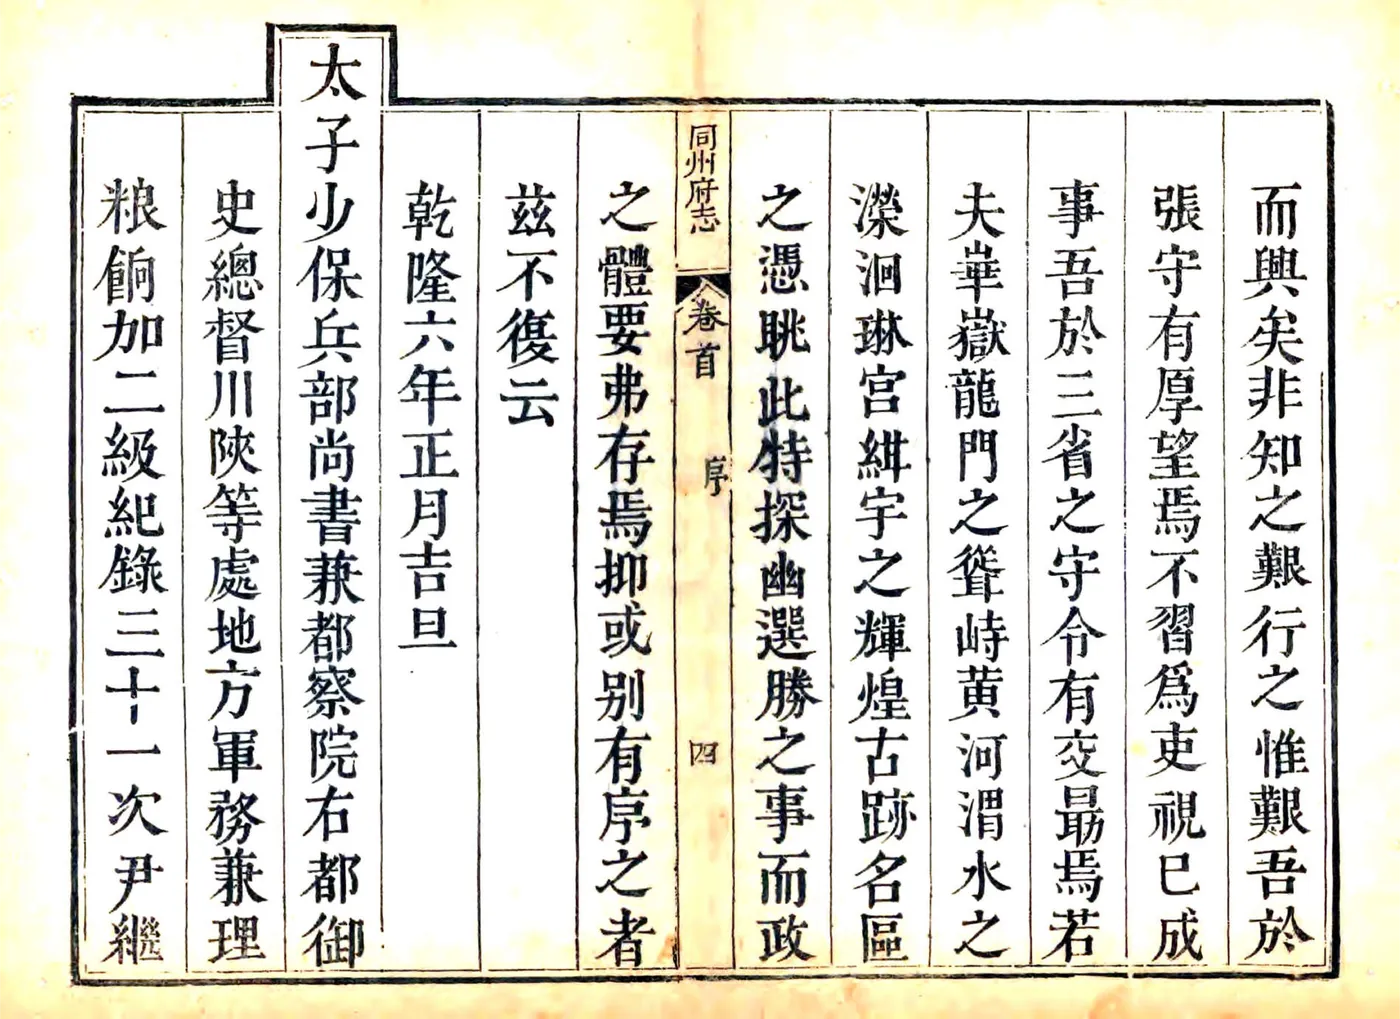 而興矣非知之艱行之惟艱吾於
張守有厚望焉不習爲吏視已成
事吾於三省之守令有交最焉若
夫華嶽龍門之聳峙黄河渭水之
濚洄琳宫紺宇之輝煌古跡名區
之憑眺此特探幽選勝之事而政
同州府志
卷首
序
四
之體要弗存焉抑或别有序之者
兹不復云
乾隆六年正月吉旦
太子少保兵部尚書兼都察院右都御
史總督川陜等處地方軍務兼理
粮餉加二級紀錄三十一次尹繼